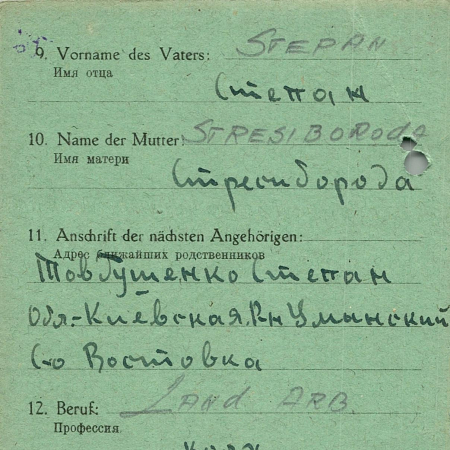 9. Vorname des Vaters: STEPAN
Имя отца
Степан
10. Name der Mutter: STRESIBORODA
Имя матери
Стресиборода
11. Anschrift der nächsten Angehörigen:
Адрес ближайших родственников
Товтушенко Степан
Обл.-Киевская. Рн Уманский
С-о Востовка
12. Beruf: LAND ARB.
Профессия